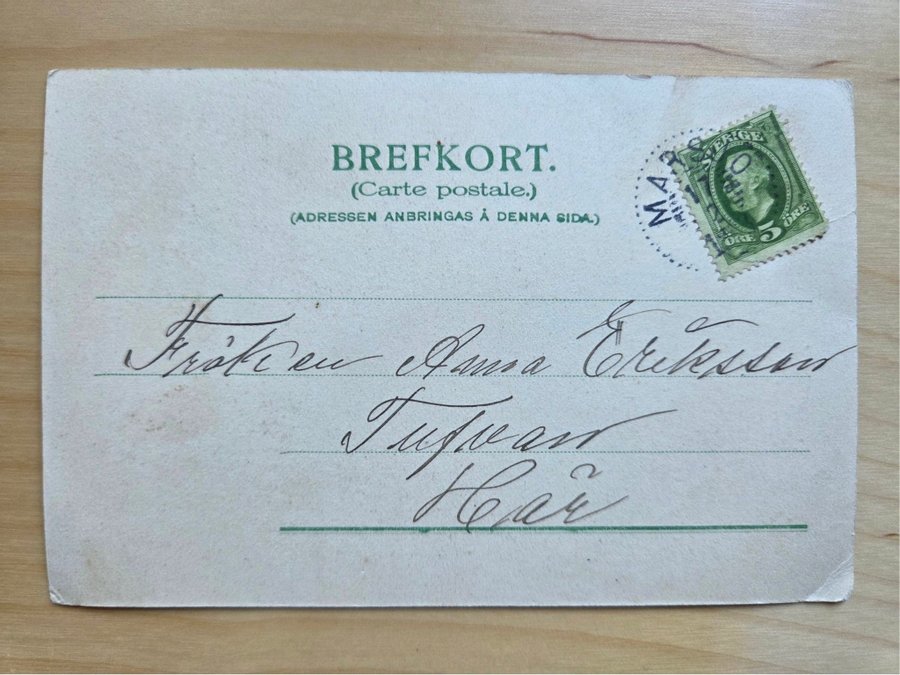 BREFKORT.
(Carte postale.)
(ADRESSEN ANBRINGAS Å DENNA SIDA.)
SVERIGE
5
ÖRE ÖRE
Fröken Anna Eriksson
Tufvan
Här